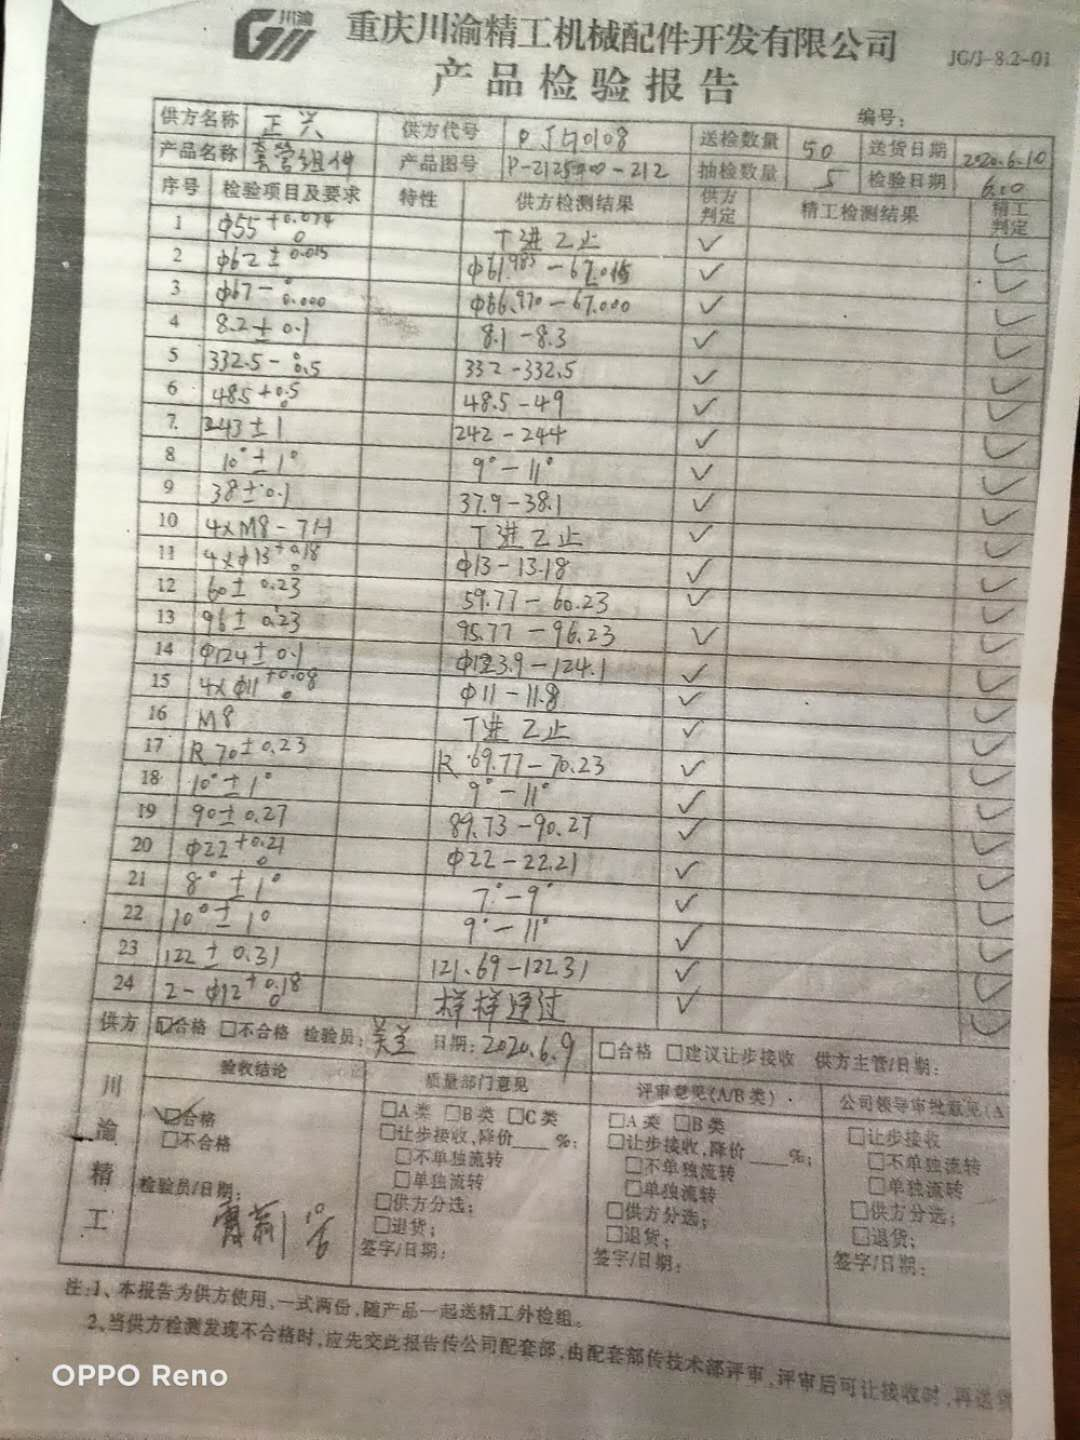 川渝
重庆川渝精工机械配件开发有限公司 JG/J-8.2-01
产品检验报告
编号：
供方名称 正兴 供方代号 PJG0108 送检数量 50 送货日期 2020.6.10
产品名称 套管组件 产品图号 P-2125400-212 抽检数量 5 检验日期 6.10
序号 检验项目及要求 特性 供方检测结果 供方判定 精工检测结果 精工判定
1 φ55 +0.074 0 T进Z止 ✓ ✓
2 φ62±0.015 φ61.985-62.015 ✓ ✓
3 φ67-0 0.000 φ66.970-67.000 ✓ ✓
4 8.2±0.1 8.1-8.3 ✓ ✓
5 332.5-0 0.5 332-332.5 ✓ ✓
6 48.5+0.5 0 48.5-49 ✓ ✓
7 243±1 242-244 ✓ ✓
8 10°±1° 9°-11° ✓ ✓
9 38±0.1 37.9-38.1 ✓ ✓
10 4×M8-7H T进Z止 ✓ ✓
11 4×φ13+0.18 0 φ13-13.18 ✓ ✓
12 60±0.23 59.77-60.23 ✓ ✓
13 96±0.23 95.77-96.23 ✓ ✓
14 φ124±0.1 φ123.9-124.1 ✓ ✓
15 4×φ11+0.08 0 φ11-11.8 ✓ ✓
16 M8 T进Z止 ✓ ✓
17 R70±0.23 R69.77-70.23 ✓ ✓
18 10°±1° 9°-11° ✓ ✓
19 90±0.27 89.73-90.27 ✓ ✓
20 φ22+0.21 0 φ22-22.21 ✓ ✓
21 8°±1° 7°-9° ✓ ✓
22 10°±1° 9°-11° ✓ ✓
23 122±0.31 121.69-122.31 ✓ ✓
24 2-φ12+0.18 0 样样通过 ✓ ✓
供方 ☑合格 □不合格 检验员： 日期：2020.6.9 □合格 □建议让步接收 供方主管/日期：
川渝精工 验收结论 质量部门意见 评审意见(A/B类) 公司领导审批意见(A
☑合格 □A类 □B类 □C类 □A类 □B类 □让步接收
□不合格 □让步接收,降价___%； □让步接收,降价___%； □不单独流转
□不单独流转 □不单独流转 □单独流转
□单独流转 □单独流转 □供方分选；
检验员/日期： □供方分选； □供方分选； □退货；
□退货； □退货；
签字/日期： 签字/日期： 签字/日期：
注：1、本报告为供方使用,一式两份,随产品一起送精工外检组。
2、当供方检测发现不合格时,应先交此报告传公司配套部,由配套部传技术部评审,评审后可让接收时,再送货
OPPO Reno